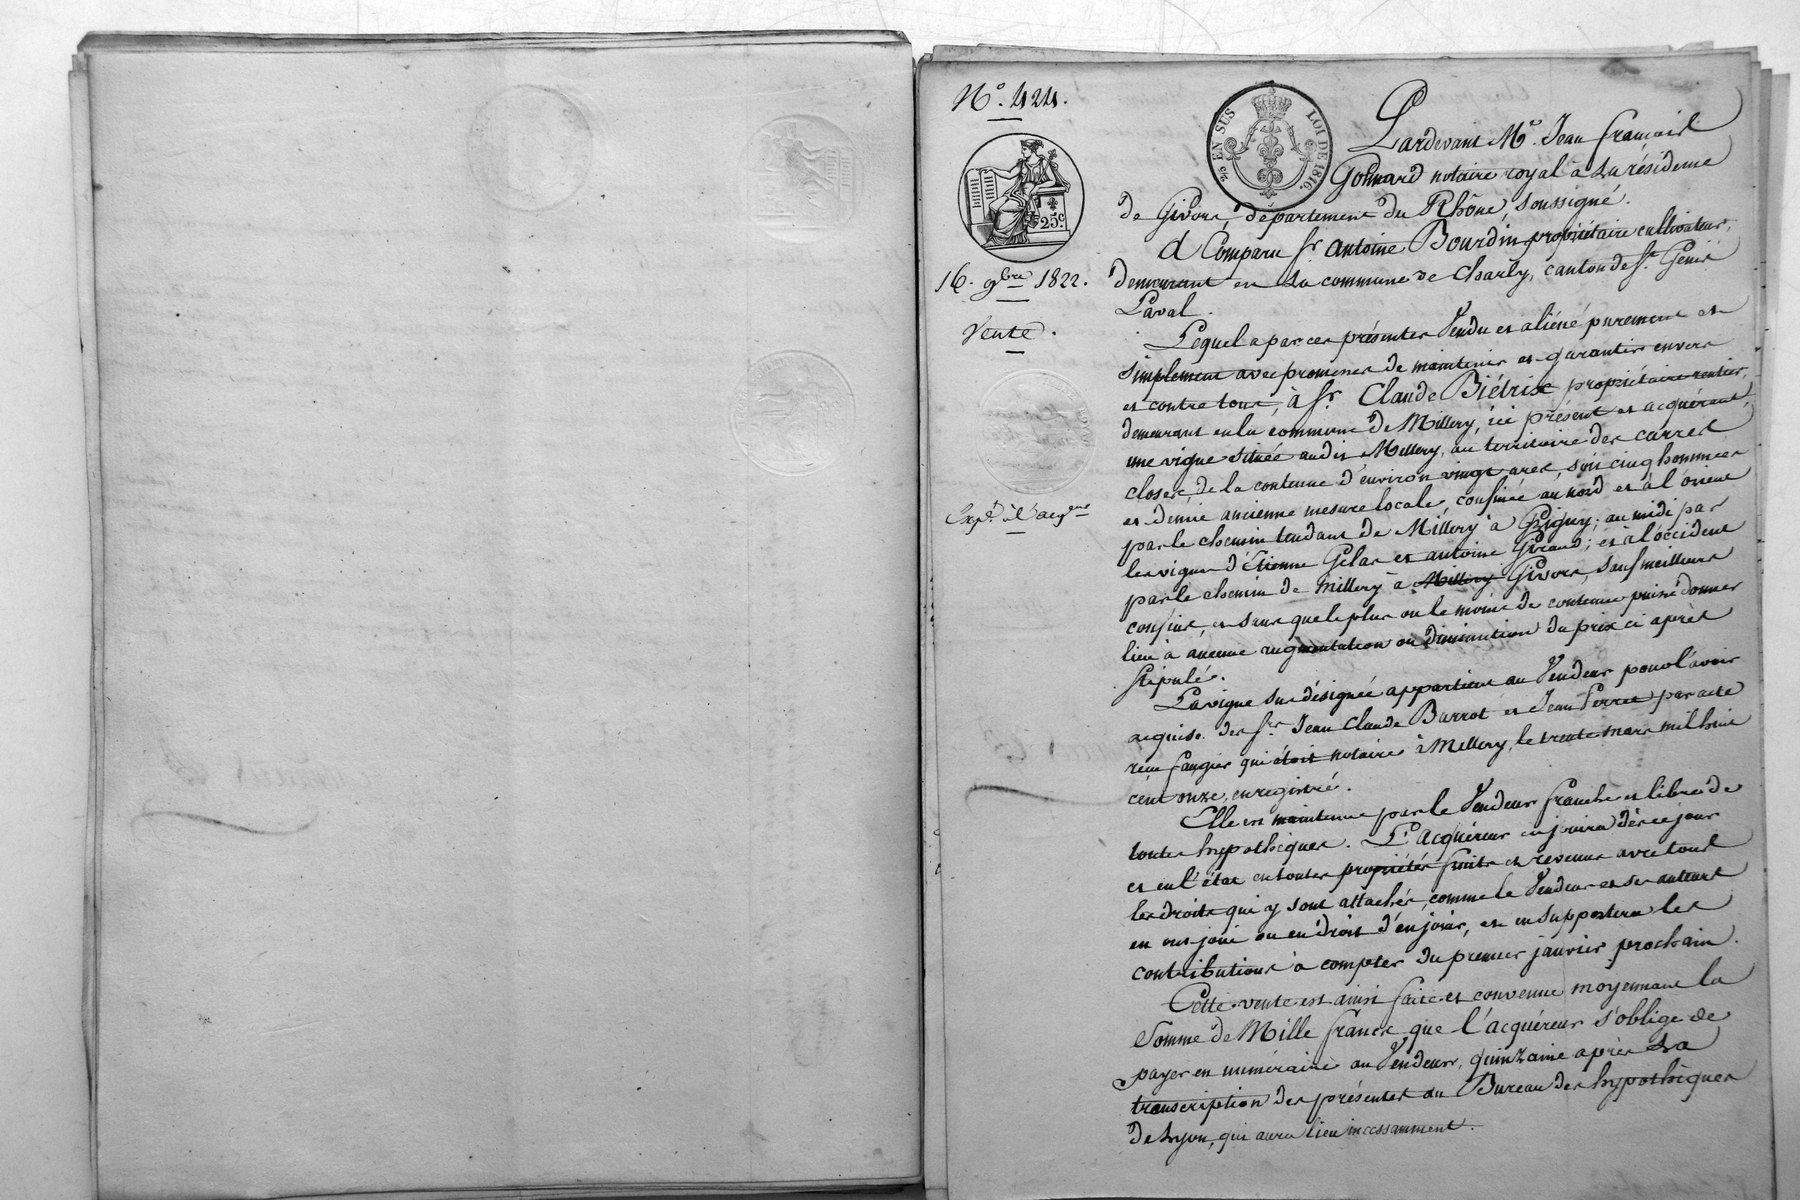 N.° 424.
25.c
16. 9bre 1822.
Vente.
Exp.on à l'acq.reur
20c EN SUS LOI DE 1816.
Pardevant M.e Jean françois
Gohnard notaire royal à la résidence
de Givors, département du Rhône, soussigné.
A Comparu S.r antoine Bourdin propriétaire cultivateur,
demeurant en la commune de Charly, canton de S.t Genis
Laval.
Lequel a par ces présentes Vendu et aliéné purement et
simplement avec promesses de maintenir et garantir envers
et contre tous, à S.r Claude Biétrix propriétaire rentier,
demeurant en la commune de Millery, ici présent et acquérant,
une vigne située audit Millery, au territoire des carres
closes de la contenue d'environ vingt ares, soit cinq hommées
et demie ancienne mesure locale, confinée au nord et à l'orient
par le chemin tendant de Millery à Grigny; au midi par
les vignes d'Etienne Gelas et antoine Giraud; et à l'occident
par le chemin de Millery à Millery Givors, sauf meilleurs
confins, et sans que le plus ou le moins de contenue puisse donner
lieu à aucune augmentation ou diminution du prix ci après
stipulé.
La vigne sus désignée appartient au Vendeur pour l'avoir
acquise des S.rs Jean Claude Barrot et Jean Perret par acte
reçu faugier qui étoit notaire à Millery, le trente mars mil huit
cent onze, enregistré.
Elle est maintenue par le Vendeur franche et libre de
toutes hypothèques. L'acquéreur en jouira dès ce jour
et en l'état en toutes propriétés fruits et revenus avec tous
les droits qui y sont attachés, comme le Vendeur et ses auteurs
en ont joui ou eu droit d'en jouir, et en supportera les
contributions à compter du premier janvier prochain.
Cette vente est ainsi faite et convenue moyennant la
somme de Mille francs que l'acquéreur s'oblige de
payer en numéraire au Vendeur, quinzaine après la
transcription des présentes au Bureau des hypothèques
de Lyon, qui aura lieu incessamment.